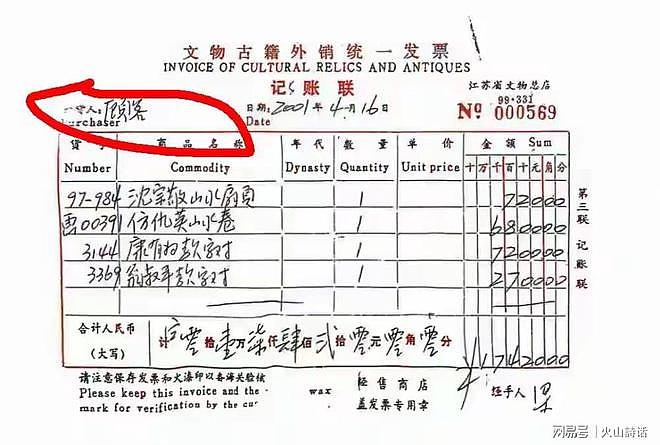 文物古籍外销统一发票
INVOICE OF CULTURAL RELICS AND ANTIQUES
记账联
江苏省文物总店
99·331
购货人:顾客
Purchaser
日期:2001年4月16
Date
№ 000569
货号 商品名称 年代 数量 单价 金额 Sum
Number Commodity Dynasty Quantity Unit price 十万千百十元角分
97-984 沈宗敬山水扇页 1 72000
00391 仿仇英山水卷 1 680000
3144 康有为款字对 1 720000
3369 翁叔平款字对 1 270000
合计人民币
(大写)
计 零拾壹万柒仟肆佰贰拾零元零角零分 1742000
第三联 记账联
请注意保存发票和火漆印以备海关验核
Please keep this invoice and the wax
mark for verification by the cus
经售商店
盖发票专用章
经手人 梁
网易号 | 火山詩话